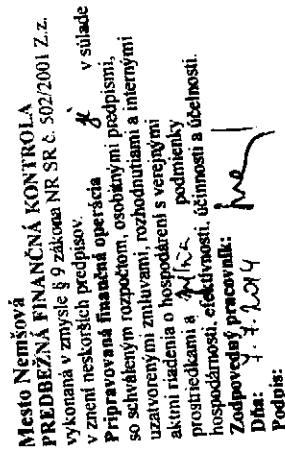 Mesto Nemšová
PREDBEŽNÁ FINANČNÁ KONTROLA
vykonaná v zmysle § 9 zákona NR SR č. 502/2001 Z.z.
v znení neskorších predpisov.
Pripravovaná finančná operácia je v súlade
so schváleným rozpočtom, osobitnými predpismi,
uzatvorenými zmluvami, rozhodnutiami a internými
aktmi riadenia o hospodárení s verejnými
prostriedkami a spĺňa podmienky
hospodárnosti, efektívnosti, účinnosti a účelnosti.
Zodpovedný pracovník:
Dňa: 7.7.2014
Podpis: